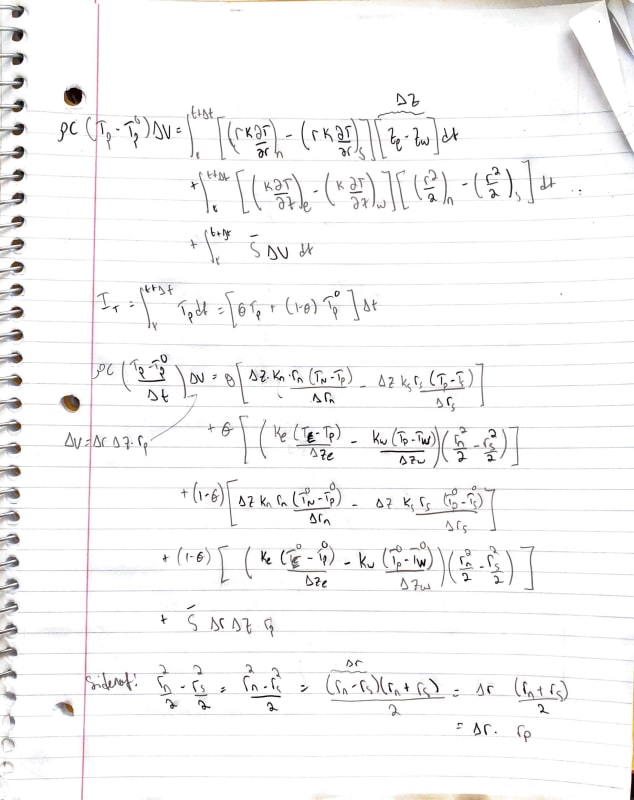 Δz
ρC (T_p - T_p^0) ΔV = ∫_t^{t+Δt} [(rK ∂T/∂r)_n - (rK ∂T/∂r)_s] [z_e - z_w] dt
+ ∫_t^{t+Δt} [(K ∂T/∂z)_e - (K ∂T/∂z)_w] [(r²/2)_n - (r²/2)_s] dt
+ ∫_t^{t+Δt} S̄ ΔV dt
I_T = ∫_t^{t+Δt} T_p dt = [θ T_p + (1-θ) T_p^0] Δt
ρC ((T_p - T_p^0)/Δt) ΔV = θ [Δz·K_n·r_n (T_N - T_p)/Δr_n - Δz K_s r_s (T_p - T_s)/Δr_s]
ΔV = Δr Δz·r_p
+ θ [(K_e (T_E - T_p)/Δz_e - K_w (T_p - T_w)/Δz_w)(r_n²/2 - r_s²/2)]
+ (1-θ) [Δz K_n r_n (T_N^0 - T_p^0)/Δr_n - Δz K_s r_s (T_p^0 - T_s^0)/Δr_s]
+ (1-θ) [(K_e (T_E^0 - T_p^0)/Δz_e - K_w (T_p^0 - T_w^0)/Δz_w)(r_n²/2 - r_s²/2)]
+ S̄ Δr Δz r_p
Δr
Sidenot: r_n²/2 - r_s²/2 = (r_n² - r_s²)/2 = (r_n - r_s)(r_n + r_s)/2 = Δr (r_n + r_s)/2
= Δr. r_p